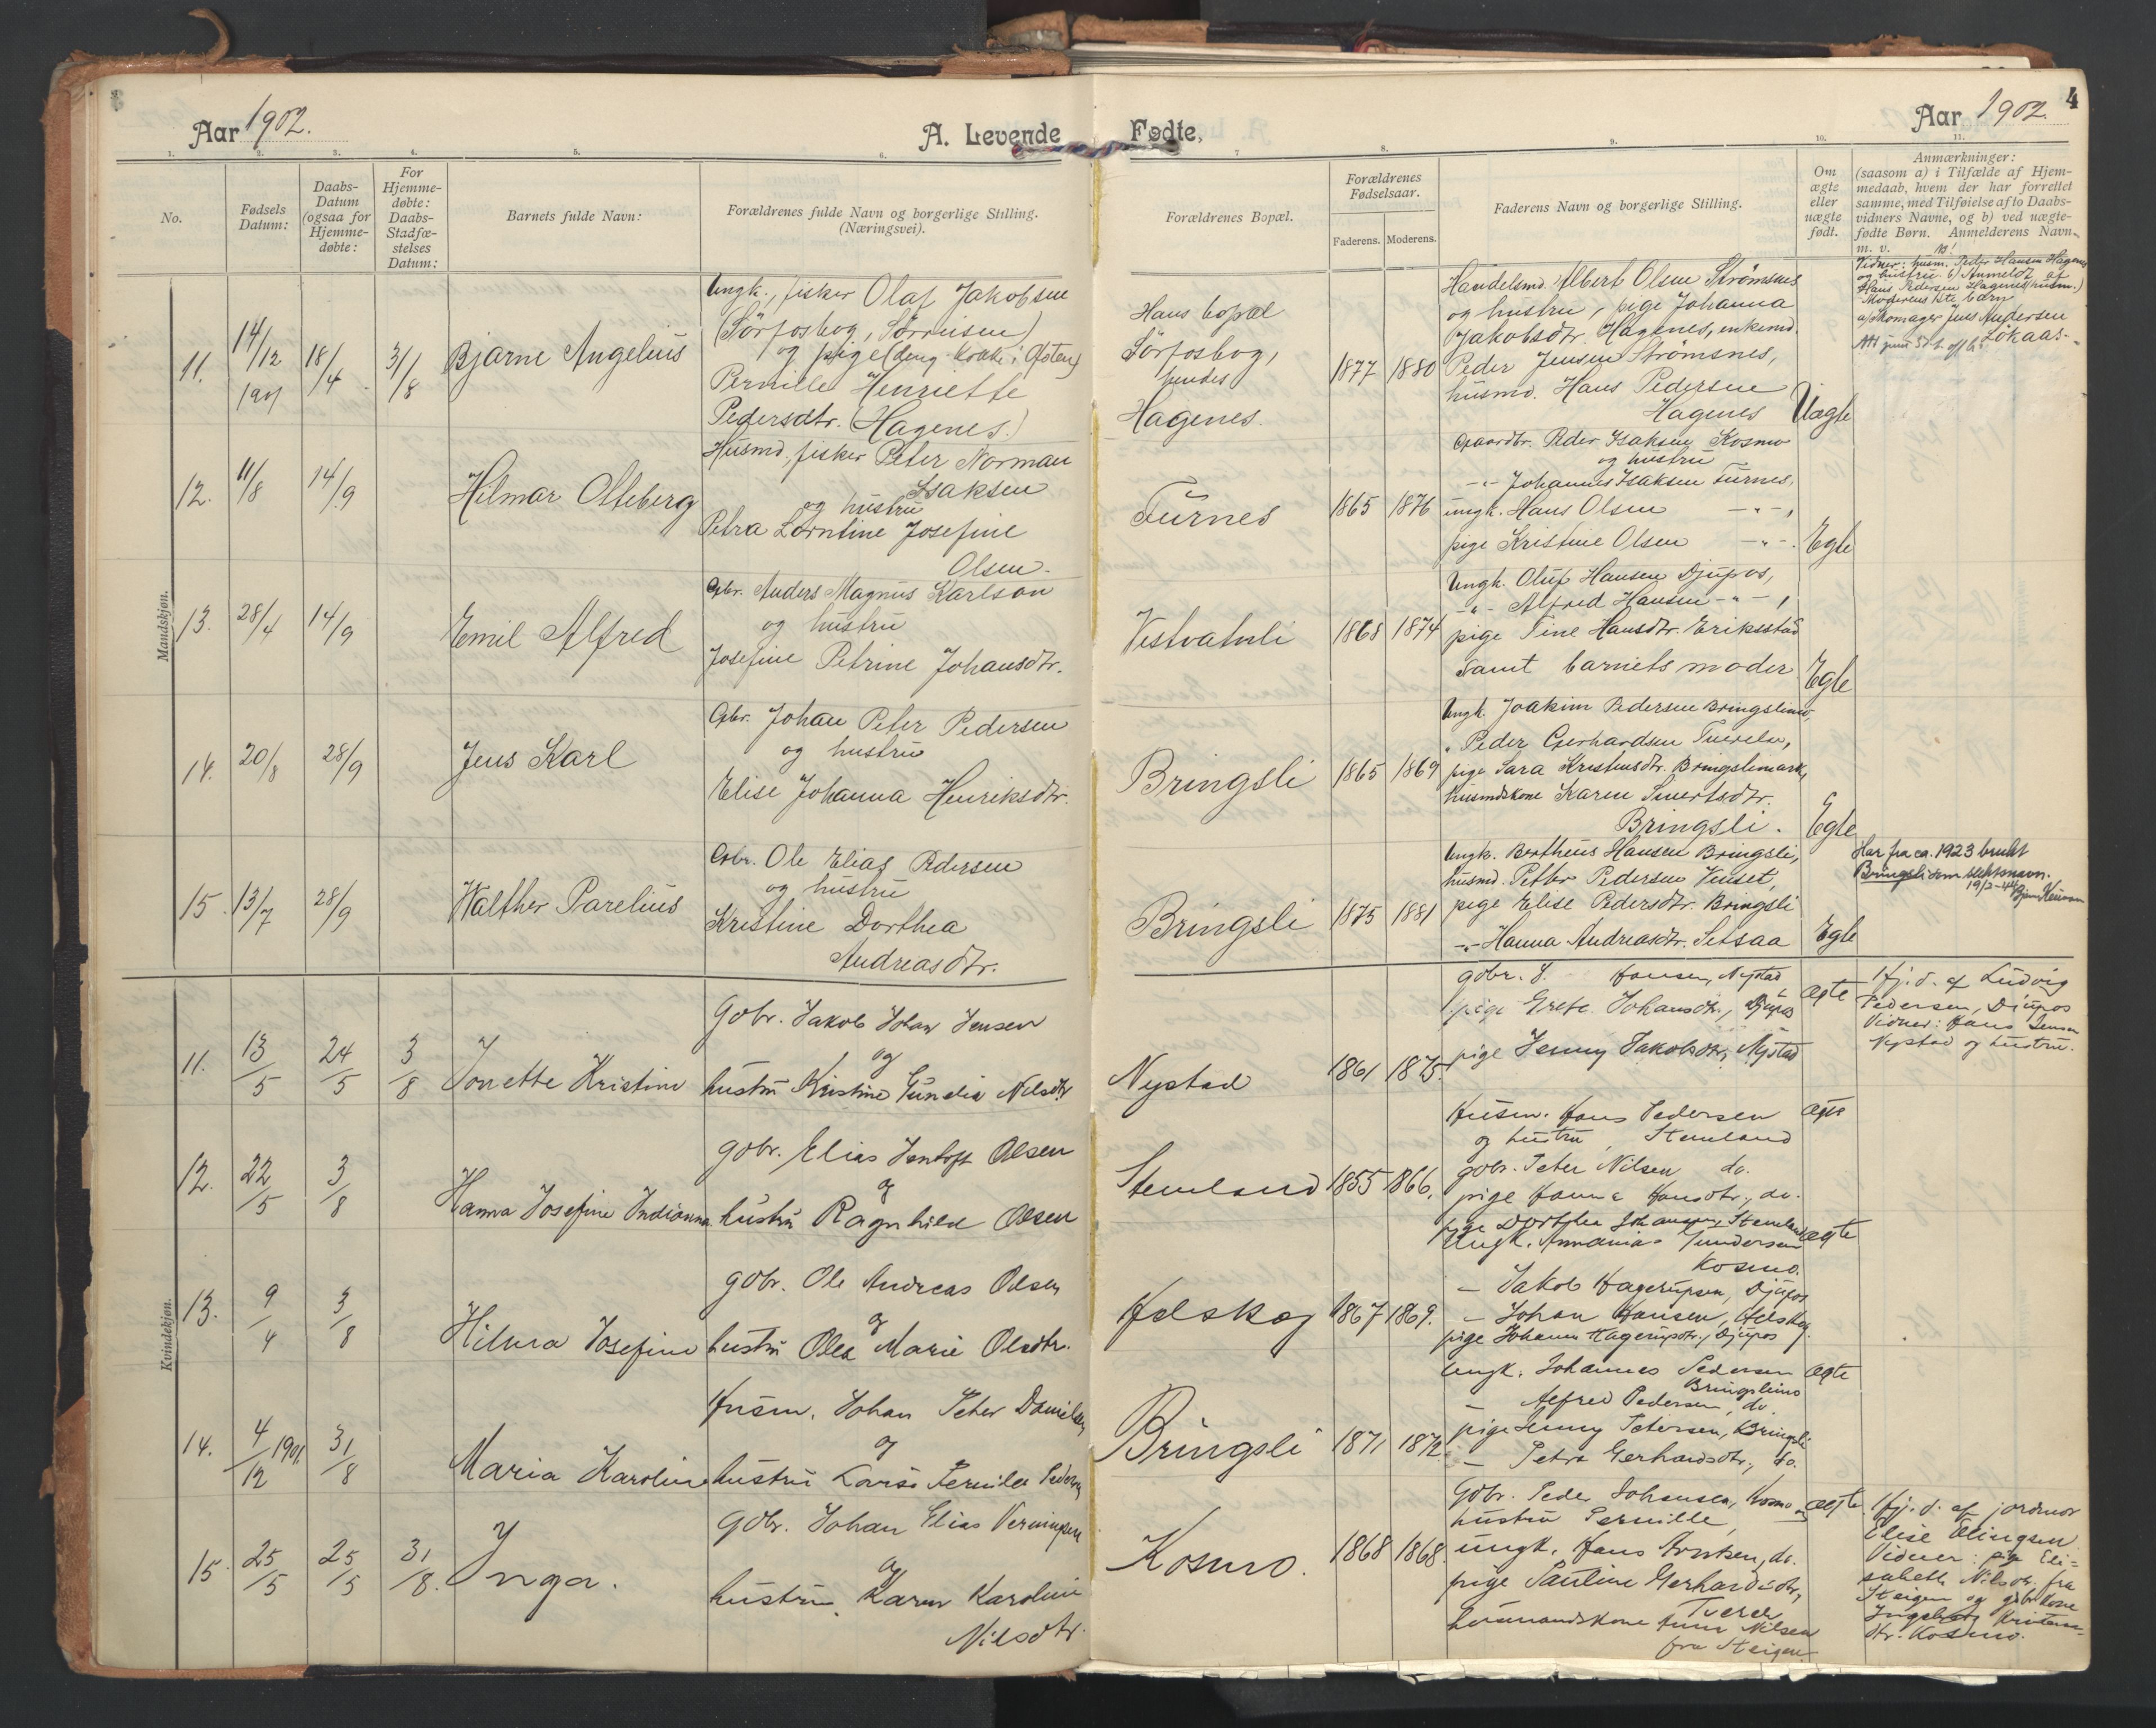 Aar 1902.
A. Levende
1. 2. 3. 4. 5. 6.
No.
Fødsels Datum:
Daabs-Datum (ogsaa for Hjemme-døbte:
For Hjemme-døbte: Daabs-Stadfæ-stelses Datum:
Barnets fulde Navn:
Forældrenes fulde Navn og borgerlige Stilling.
(Næringsvei).
Mandskjøn.
11. 14/12 1901 18/4 31/8 Bjarne Angelius
Ungk., fisker Olaf Jakobsen
(Sörfosbog, Sörreisen)
og pige
Pernille Henriette
Pedersdtr. (Hagenes.)
12. 11/8 14/9 Hilmar Olteberg
Husmd, fisker Peter Norman
Isaksen
og hustru
Petra Lorntine Josefine
Olsen.
13. 28/4 14/9 Emil Alfred
Gbr. Anders Magnus Karlson
og hustru
Josefine Petrine Johansdtr.
14. 20/8 28/9 Jens Karl
Gbr. Johan Peter Pedersen
og hustru
Elise Johanna Henriksdtr.
15. 13/7 28/9 Walther Parelius
Gbr. Ole Elias Pedersen
og hustru
Kristine Dorthea
Andreasdtr.
Kvindekjøn.
11. 13/5 24/5 3/8 Jonette Kristine
Gbr. Jakob Johan Jensen
og
hustru Kristine Gundia Nilsdtr
12. 22/5 3/8 Hanna Josefine Indianna
gbr. Elias Jentoft Olsen
og
hustru Ragnhild Olsen
13. 9/4 3/8 Hilma Josefine
gbr. Ole Andreas Olsen
og
hustru Olea Marie Olsdtr.
14. 4/12 1901. 31/8 Maria Karoline
Husm. Johan Peter Danielsen
og
hustru Pernilla Peders
15. 25/5 25/5 31/8. Inga.
gbr. Johan Elias
og
hustru Karen Karoline
Nilsdtr.
Fødte,
Aar 1902.
4
7 8. 9. 10. 11.
Forældrenes Bopæl.
Forældrenes Fødselsaar.
Faderens. Moderens.
Faderens Navn og borgerlige Stilling.
Om ægte eller uægte født.
Anmærkninger:
(saasom a) i Tilfælde af Hjem-
medaab, hvem der har forrettet
samme, med Tilføielse af to Daabs-
vidners Navne, og b) ved uægte-
fødte Børn. Anmelderens Navn
m. v.
Hans bopæl
Sörfosbog,
hendes
Hagenes.
1877 1880
Handelsmd. Albert Olsen Strømsnes
og hustru, pige Johanna
Jakobsdtr. Hagenes, enkemd.
Peder Jensen Strømsnes,
husmd. Hans Pedersen
Hagenes
Uægte
Vidner: husm. Peder Hansen Hagenes
og hustru. b) Anmeldt af
Hans Pedersen Hagenes (husm.)
Moderens 1ste barn
a) Skomager Jens Andersen
Løkaas.
Furnes 1865 1876
Gaardbr. Peder Isaksen Kosmo
og hustru
-"- Johannes Isaksen Furnes,
ungk. Hans Olsen -"-,
pige Kristine Olsen -"-.
Egte
Vestvatnli 1868 1874
Ungk. Oluf Hansen Djupos,
-"- Alfred Hansen -"-,
pige Tine Hansdtr. Eriksstad
samt barnets moder
Egte
Bringsli 1865 1869
Ungk. Joakim Pedersen Bringslimo,
" Peder Gerhardsen
pige Sara Kristensdtr. Bringslimark,
husmdskone Karen
Bringsli.
Egte
Bringsli 1875 1881
Ungk. Bertheus Hansen Bringsli,
husmd. Petter Pedersen Venset,
pige Elise Pedersdtr. Bringsli
-"- Hanna Andreasdtr. Setsaa
Egte
Har fra ca. 1923 brukt
Bringsli som slektsnavn.
19/2-44
Nystad 1861 1875.
gbr. J. Hansen, Nystad
pige Grete Johansdtr., Djupos
pige Jenny Jakobsdtr, Nystad
ægte
Hj. d. af Ludvig
Pedersen, Djupos
Vidner: Hans Jensen
Nystad og hustru.
Stemland 1855 1866.
Husm. Hans Pedersen
og hustru, Stemland
gbr. Peter Nilsen do.
pige Hanna Hansdtr., do.
pige Dorthea Johansen, Stemland
ægte
Holskog 1867 1869.
Ungk. Annanias Gundersen
Kosmo.
— Jakob Hagerupsen, Djupos
— Johan Hansen, Holskog
pige Johanna Hagerupsdtr., Djupos
ægte
Bringsli 1871 1872
Ungk. Johannes Pedersen
Bringslimo
— Alfred Pedersen, do.
pige Jenny Petersen, Bringsli
— Petra Gerhardsdtr., do.
ægte
Kosmo. 1868 1868.
Gbr. Peder Johansen, Kosmo og
hustru Pernille,
ungk. Hans Arntsen, do.
pige Pauline Gerhardsdtr,
Tverer
husmandskone Anna Nilsen
fra Steigen.
ægte
Hj. d. af jordmor
Elise Elingsen
Vidner: pige Eli-
sabeth Nilsdtr. fra
Steigen og gbrkone
Ingeborg Kristens-
dtr. Kosmo.